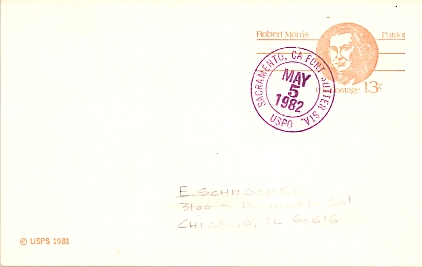 Robert Morris Patriot
Postage 13c
SACRAMENTO, CA FORT SUTTER STA.
MAY
5
1982
USPO
E. SCHNOCKER
CHICAGO, IL 60616
© USPS 1981